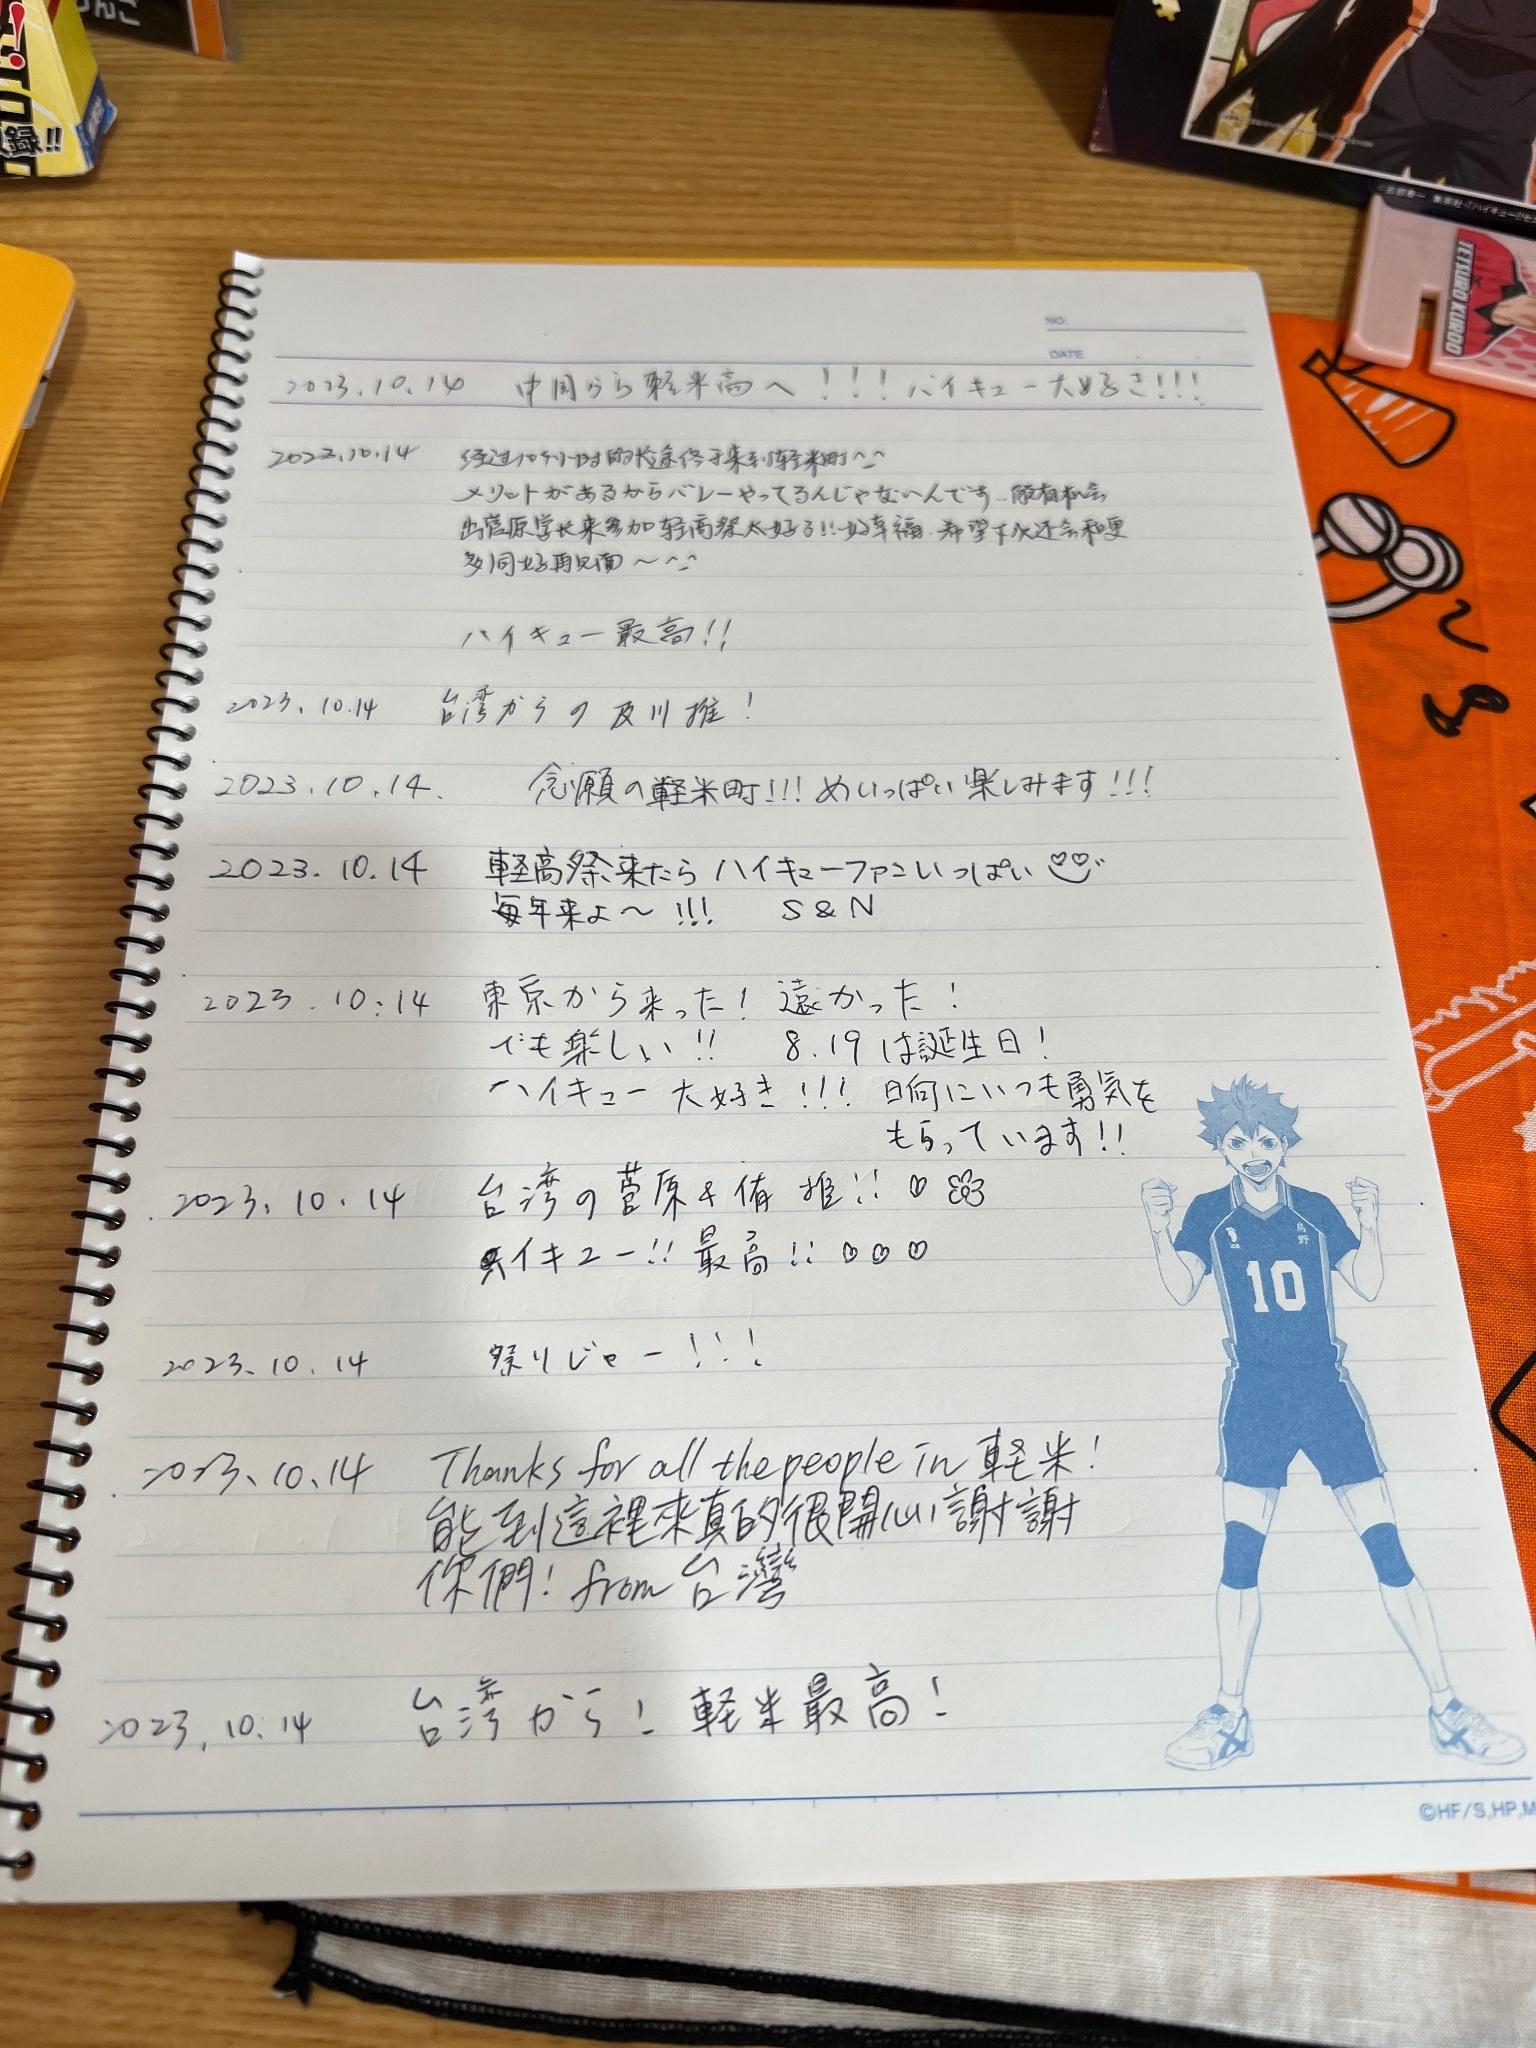 録!!
TETSURO KUROO
NO.
DATE
2023.10.14 中国から軽米高へ!!!ハイキュー大好き!!!
2023.10.14 经过10个小时的长途终于来到軽米町^-^
メリットがあるからバレーやってるんじゃないんです..能有机会
出菅原学长来参加轻高祭太好了!!好幸福.希望下次还会和更
多同好再见面～^-^
ハイキュー最高!!
2023.10.14 台湾からの及川推!
2023.10.14. 念願の軽米町!!!めいっぱい楽しみます!!!
2023.10.14 軽高祭来たらハイキューファンいっぱい
毎年来よ～!!! S&N
2023.10.14 東京から来った!遠かった!
でも楽しい!! 8.19は誕生日!
ハイキュー大好き!!!日向にいつも勇気を
もらっています!!
2023.10.14 台湾の菅原&侑推!!♡
ハイキュー!!最高!!♡♡♡
2023.10.14 祭りじゃー!!!
2023.10.14 Thanks for all the people in 軽米!
能到這裡來真的很開心!謝謝
你們! from 台灣
2023.10.14 台湾から!軽米最高!
烏野
10
©HF/S,HP,M